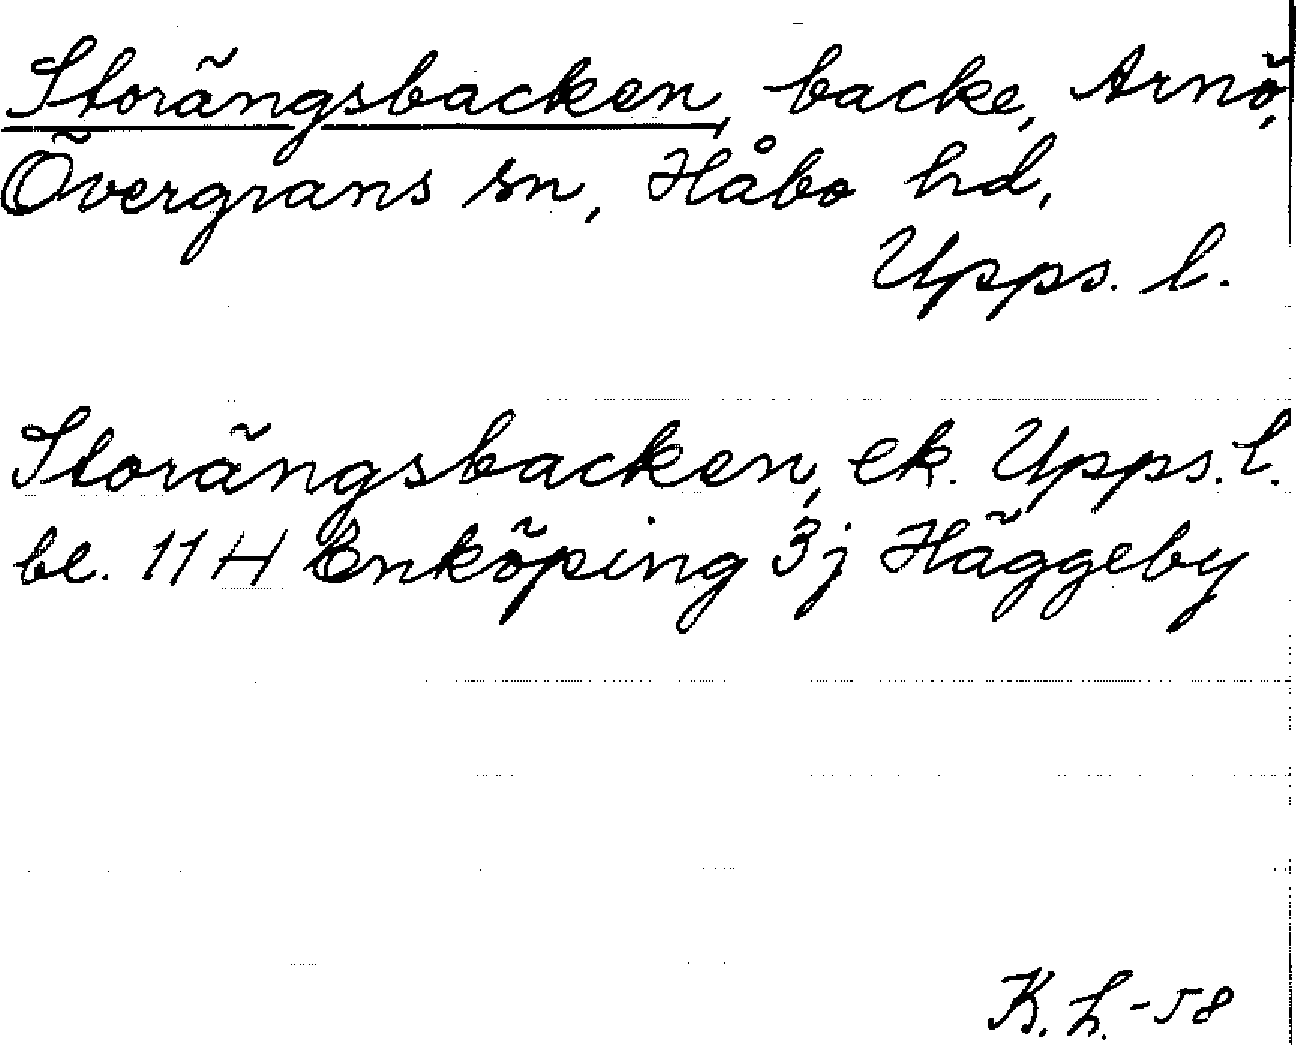 Storängsbacken, backe, Arnö,
Övergrans sn, Håbo hd,
Upps. l.
Storängsbacken, ek. Upps. l.
bl. 11 H Enköping 3j Häggeby
K. L. -58